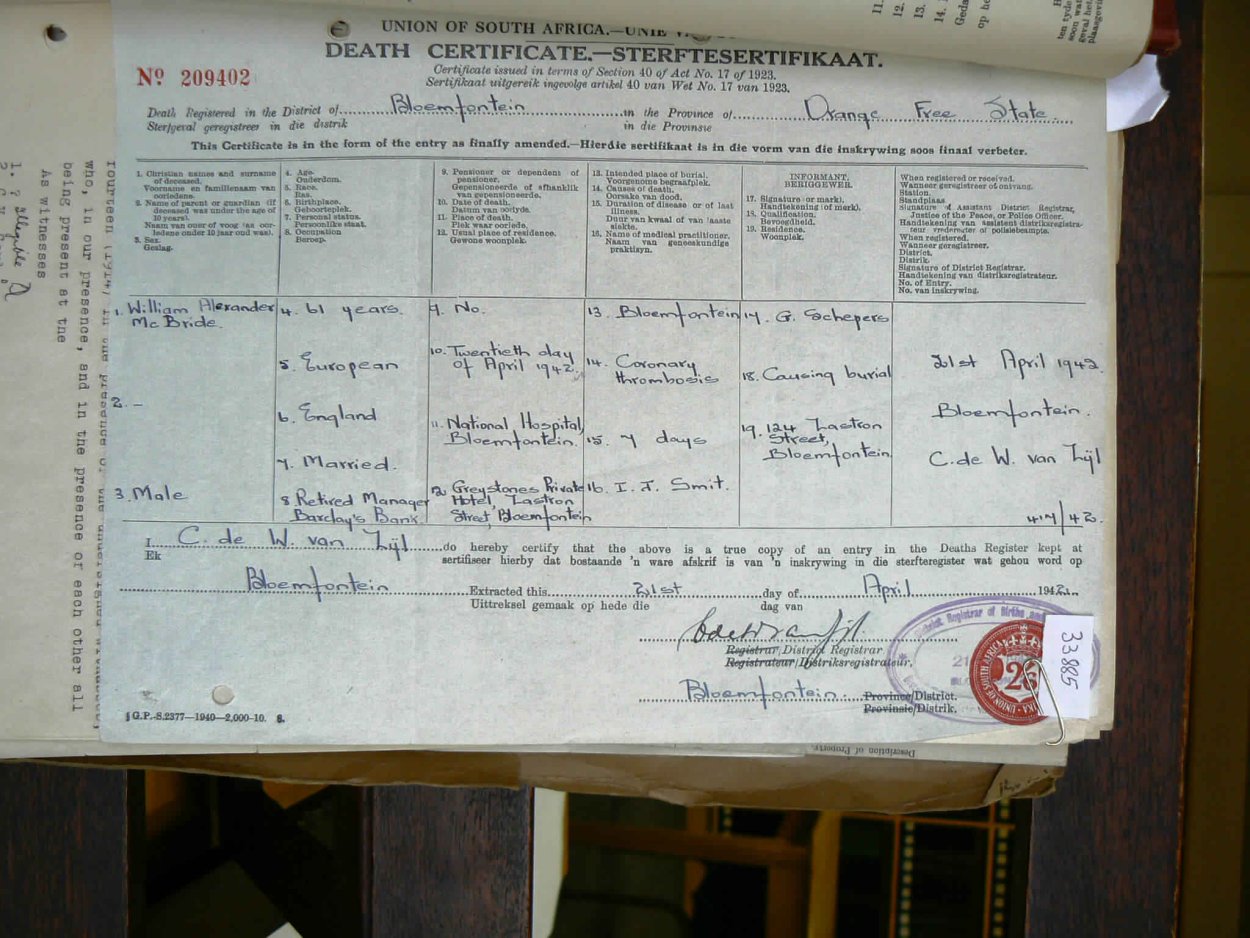 UNION OF SOUTH AFRICA.—UNIE
DEATH CERTIFICATE.—STERFTESERTIFIKAAT.
No 209402
Certificate issued in terms of Section 40 of Act No. 17 of 1923.
Sertifikaat uitgereik ingevolge artikel 40 van Wet No. 17 van 1923.
Death Registered in the District of Bloemfontein in the Province of Orange Free State
Sterfgeval geregistreer in die distrik in die Provinsie
This Certificate is in the form of the entry as finally amended.—Hierdie sertifikaat is in die vorm van die inskrywing soos finaal verbeter.
1. Christian names and surname
of deceased.
Voorname en familienaam van
oorledene.
2. Name of parent or guardian (if
deceased was under the age of
10 years).
Naam van ouer of voog (as oor-
ledene onder 10 jaar oud was).
3. Sex.
Geslag.
4. Age.
Ouderdom.
5. Race.
Ras.
6. Birthplace.
Geboorteplek.
7. Personal status.
Persoonlike staat.
8. Occupation
Beroep.
9. Pensioner or dependent of
pensioner.
Gepensioneerde of afhanklik
van gepensioneerde.
10. Date of death.
Datum van oorlyde.
11. Place of death.
Plek waar oorlede.
12. Usual place of residence.
Gewone woonplek.
13. Intended place of burial.
Voorgenome begraafplek.
14. Causes of death.
Oorsake van dood.
15. Duration of disease or of last
illness.
Duur van kwaal of van laaste
siekte.
16. Name of medical practitioner.
Naam van geneeskundige
praktisyn.
INFORMANT.
BERIGGEWER.
17. Signature or mark).
Handtekening (of merk).
18. Qualification.
Bevoegdheid.
19. Residence.
Woonplek.
When registered or received.
Wanneer geregistreer of ontvang.
Station.
Standplaas
Signature of Assistant District Registrar,
Justice of the Peace, or Police Officer.
Handtekening van assistent distriksregistra-
teur vrederegter of polisiebeampte.
When registered.
Wanneer geregistreer.
District.
Distrik.
Signature of District Registrar.
Handtekening van distriksregistrateur.
No. of Entry.
No. van inskrywing.
1. William Alexander
McBride.
2. -
3. Male
4. 61 years.
5. European
6. England
7. Married.
8 Retired Manager
Barclay's Bank
9. No.
10. Twentieth day
of April 1942.
11. National Hospital,
Bloemfontein.
12. Greystones Private
Hotel, Zastron
Street, Bloemfontein
13. Bloemfontein
14. Coronary
thrombosis
15. 7 days
16. I. J. Smit.
17. G. Schepers
18. Causing burial
19. 124 Zastron
Street,
Bloemfontein
21st April 1942.
Bloemfontein.
C. de W. van Zijl
417/42.
I C. de W. van Zijl do hereby certify that the above is a true copy of an entry in the Deaths Register kept at
Ek sertifiseer hierby dat bostaande 'n ware afskrif is van 'n inskrywing in die sterfteregister wat gehou word op
Bloemfontein Extracted this 21st day of April 1942.
Uittreksel gemaak op hede die dag van
CdeWvanZijl
Registrar/District Registrar
Registrateur/Distriksregistrateur.
Bloemfontein Province/District.
Provinsie/Distrik.
G.P.-S.2377—1940—2,000-10. S.
District Registrar of Births and
21
UNION OF SOUTH AFRICA
33885
Description of Property
11.
12.
13.
14.
who, in our presence, and in the presence of
being present at the
As witnesses